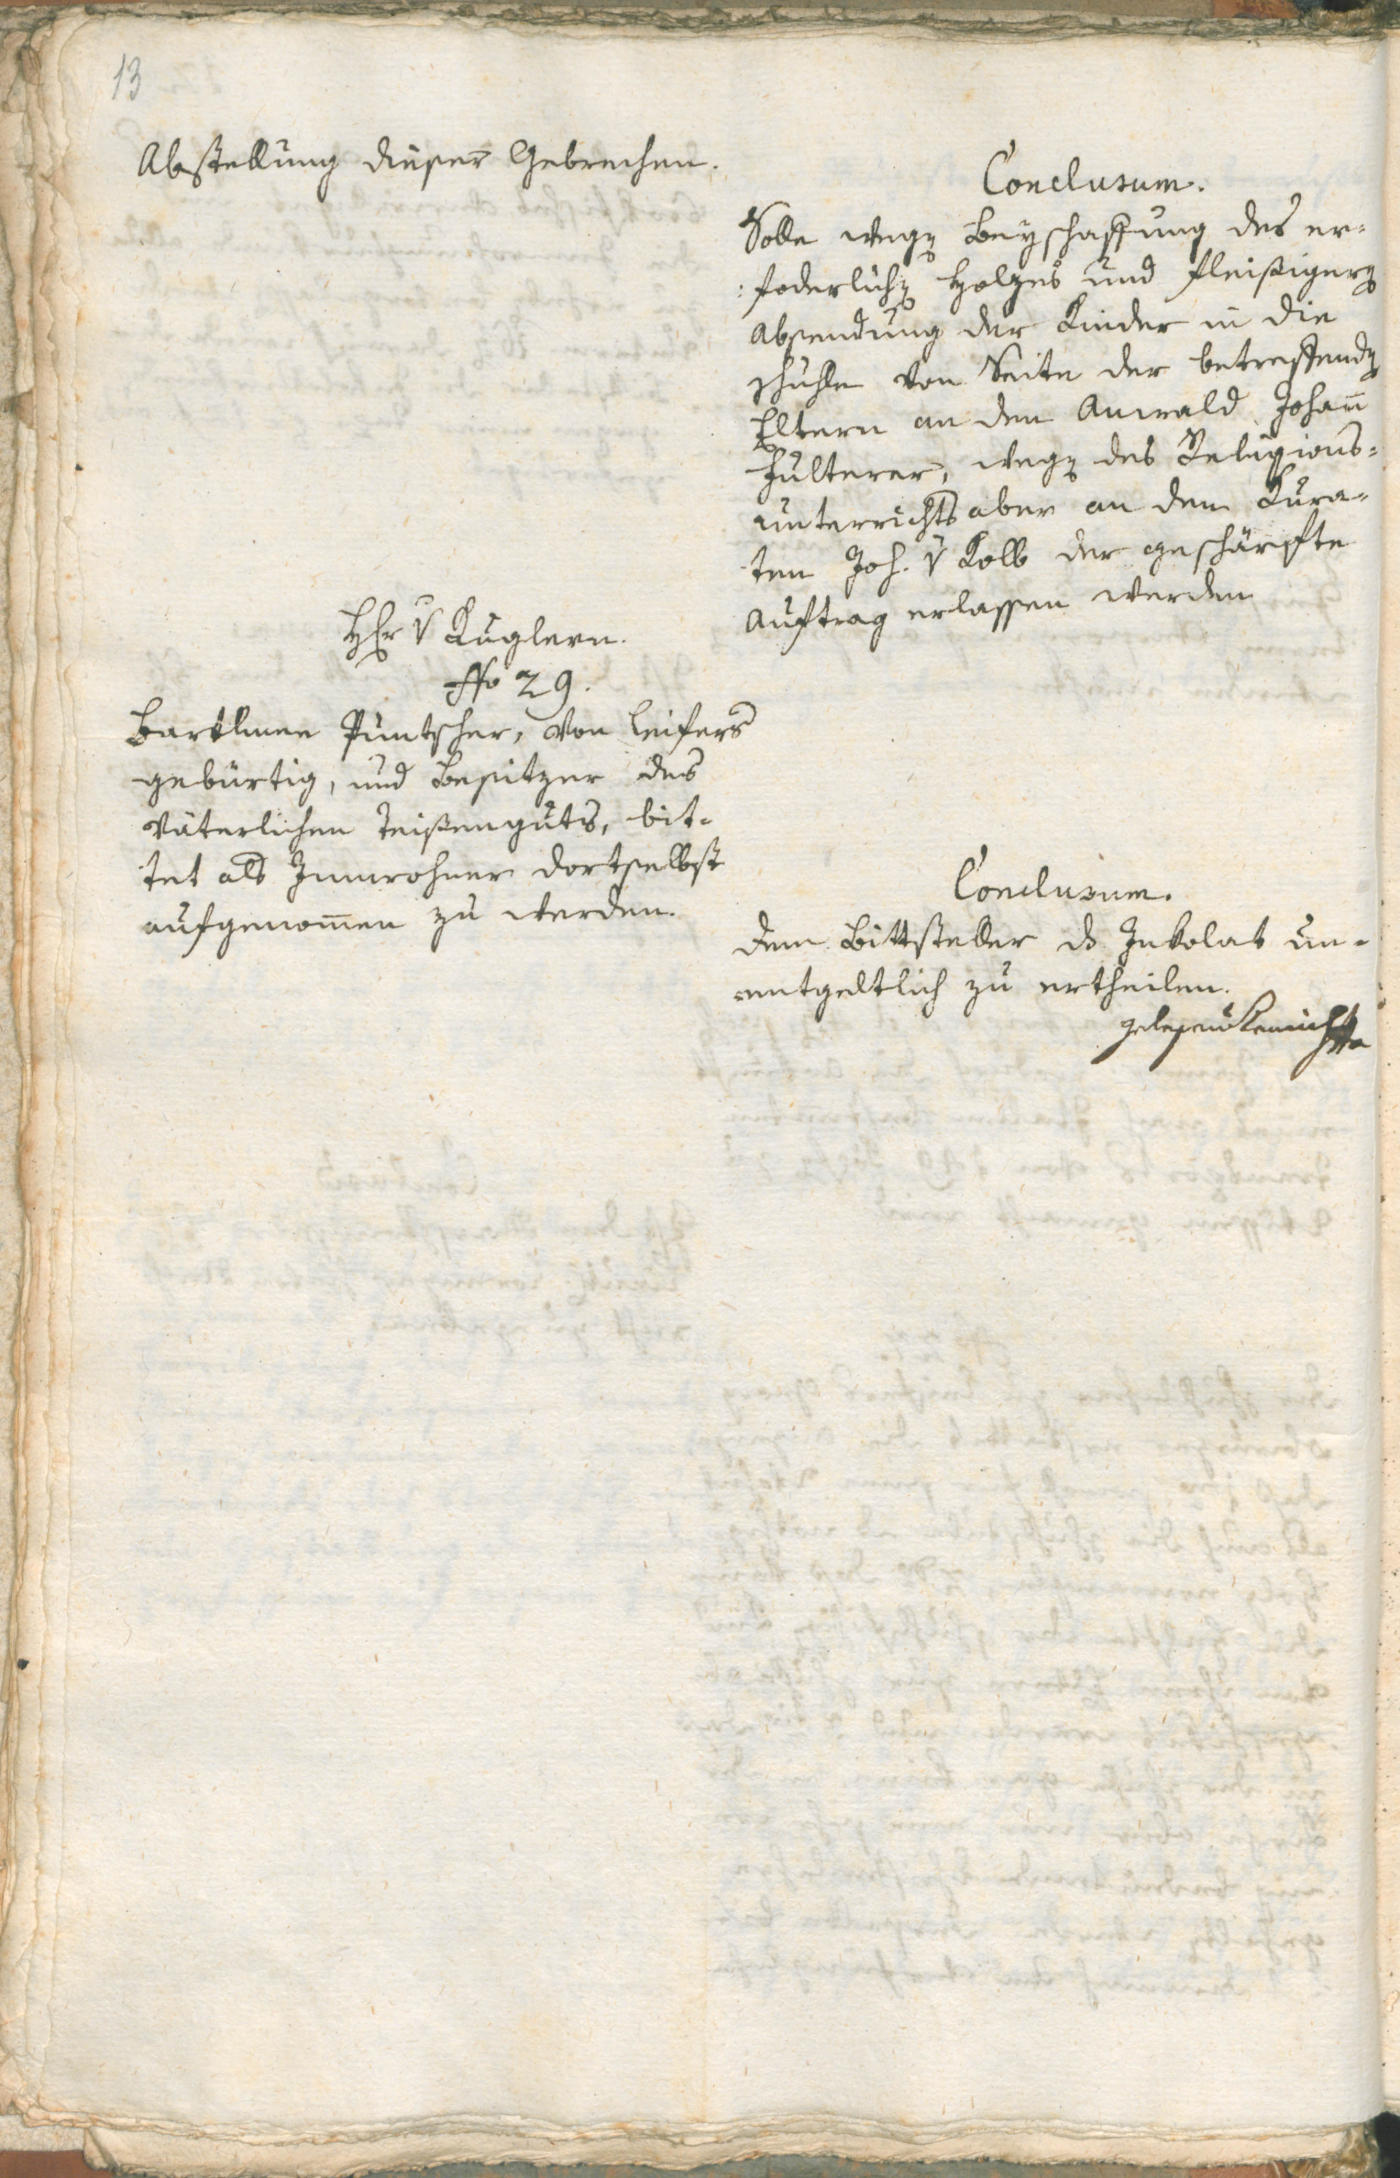 13
Abstellung dieser Gebrechen.
Conclusum.
Solle wegen Beyschaffung des er-
foderlichen Holzes und fleißigern
Absendung der Kinder in die
Schuhle von Seite der betreffenden
Eltern an den Anwald Johann
Zulterer, wegen des Religions-
unterrichts aber an den Kura-
ten Joh. v Kolb der geschärfte
Auftrag erlassen werden
Hr v Kuglern.
No 29.
Bartlmee Puntscher, von Leifers
gebürtig, und Besitzer des
Väterlichen Teißenguts, bit-
tet als Innwohner dortselbst
aufgenomen zu werden.
Conclusum.
Dem Bittsteller ds Inkolat un-
entgeltlich zu ertheilen.